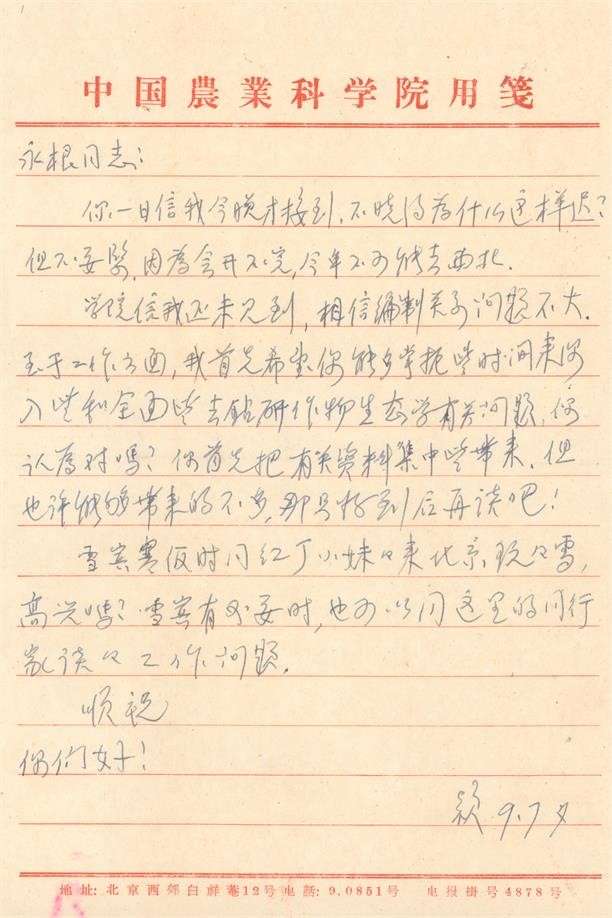 中国農業科学院用箋
永根同志：
你一日信我今晚才接到，不晓得为什么这样迟？
但不要紧，因為会开不完，今年不可能去西北．
学院信我还未见到，相信编制关系问题不大．
至于工作方面，我首先希望你能多掌握些时间来深
入些和全面些去鉆研作物生态学有关问题，你
认為对吗？你首先把有关資料集中些带来．但
也许能够带来的不多，那只好到后再谈吧！
雪宾寒假时同红丁小妹々来北京玩々雪，
高兴吗？雪宾有必要时，也可以同这里的同行
家谈々工作问题．
顺祝
你们好！
颖 9.7夕
地址：北京西郊白祥菴12号 电話：9.0851号 电报掛号4878号